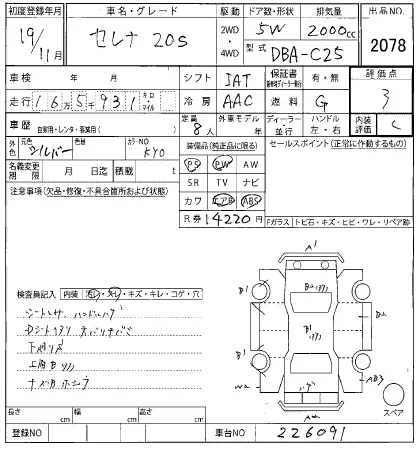 初度登録年月 車名・グレード 駆動 ドア数・形状 排気量 出品NO.
19/11月 セレナ 20S 2WD ・ 4WD 5W 2000cc 2078
型式 DBA-C25
車検 年 月 シフト IAT 保証書 有・無 評価点
走行 16万5千931 キロ・マイル 冷房 AAC 燃料 G 3
車歴 自家用・レンタ・事業用( ) 定員 8人 外車モデル 年 ディーラー・並行 ハンドル 左・右 内装評価 C
外色 元色 シルバー 色替 カラーNO KY0 装備品(純正品に限る) セールスポイント(正常に作動するもの)
名義変更期限 月 日迄 積載 t PS PW AW
SR TV ナビ
注意事項(欠品・修復・不具合箇所および状態) カワ エアB ABS
R券 14220円 Fガラス トビ石・キズ・ヒビ・ワレ・リペア跡
A1
B1 B2
B1 B2
B1
W2 AB3
検査員記入 内装 汚レ・スレ・キズ・キレ・コゲ・穴
シートスレ ハンドルハゲ
下廻りサビ
ハゲ
A2
スペア
長さ cm 幅 cm 高さ cm
登録NO 車台NO 226091